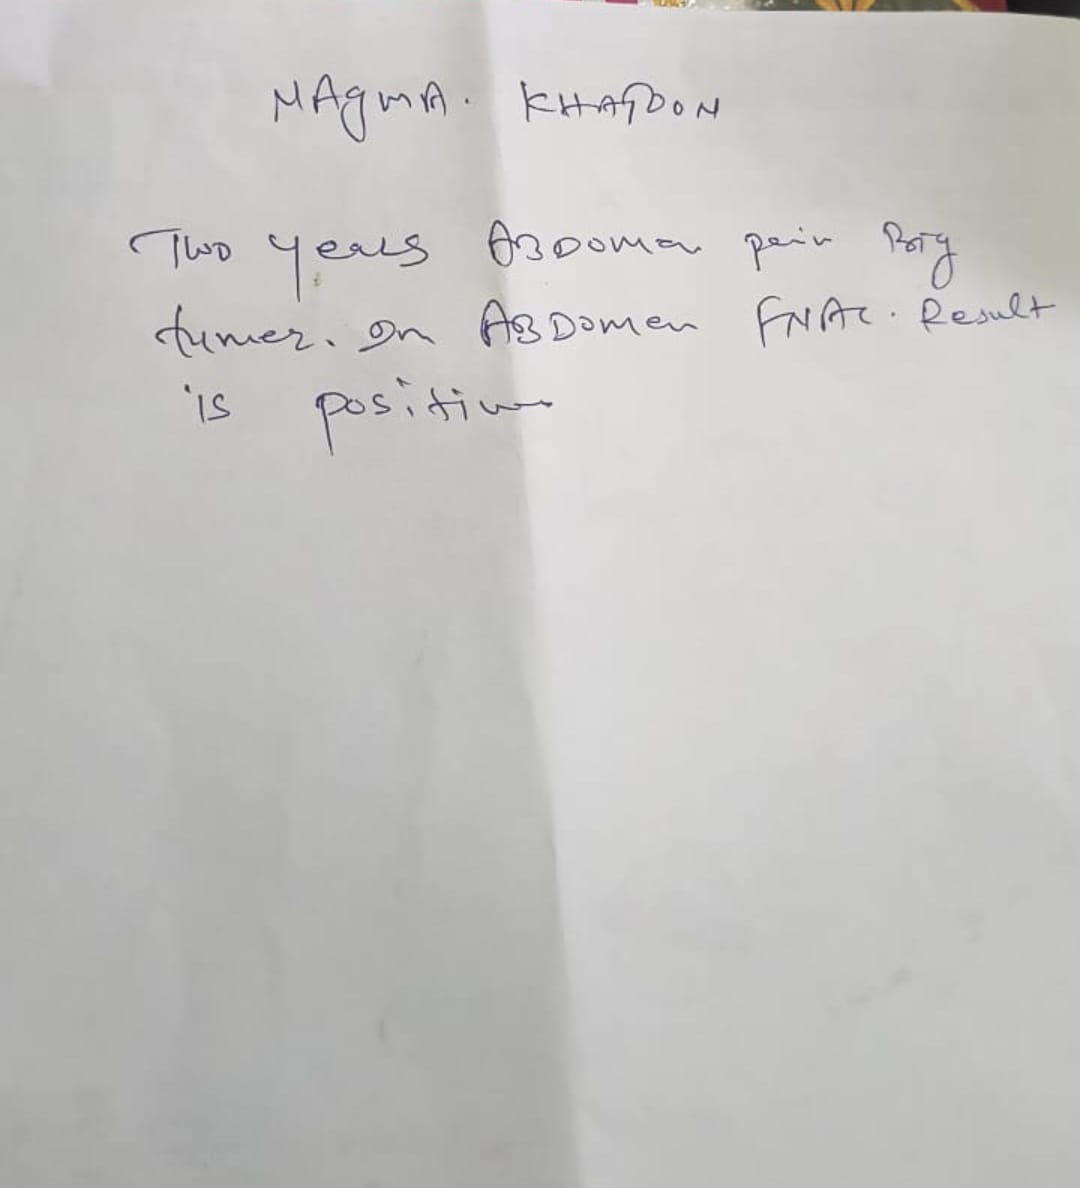 NAgmA. KHATOON
Two years ABDomen pain Big
tumer. on ABDomen FNAC. Result
is positive